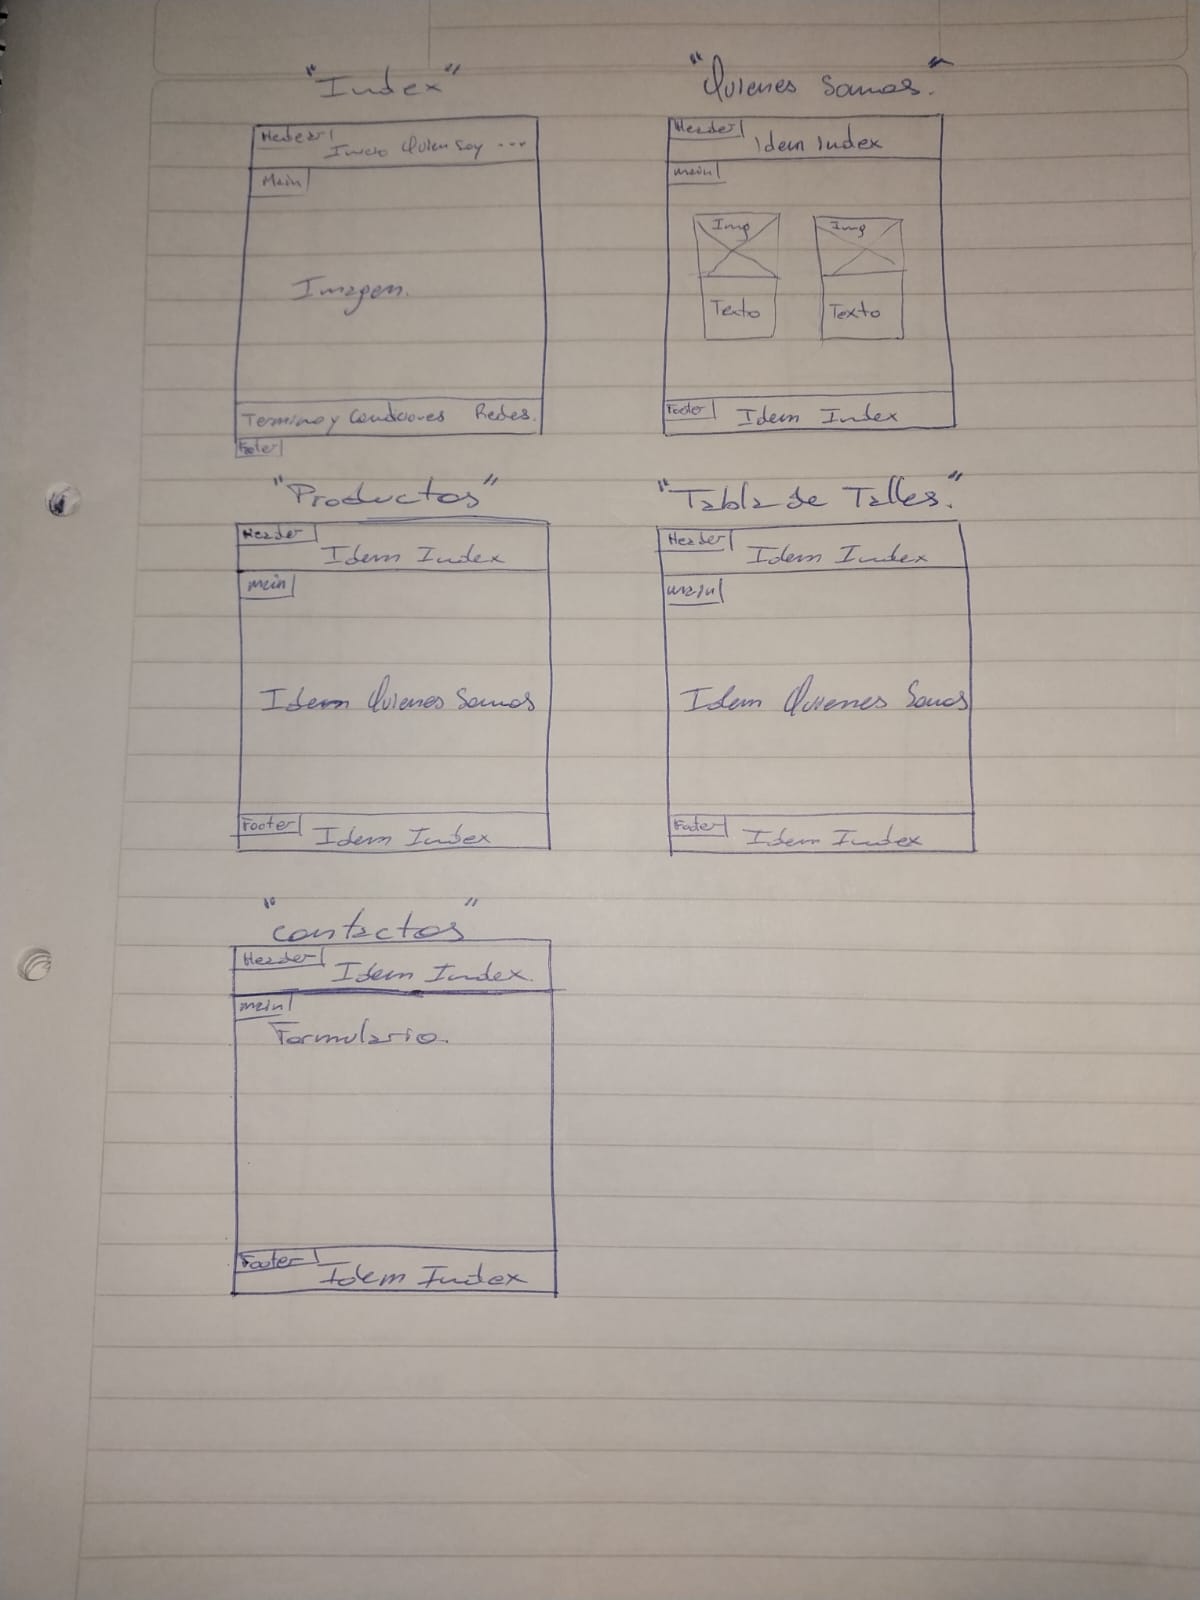 "Index"
Header
Inicio Quien Soy ...
Main
Imagen.
Termino y Condiciones Redes.
Footer
"Quienes Somos."
Header
Idem Index
main
Img Img
Texto Texto
Footer
Idem Index
"Productos"
Header
Idem Index
main
Idem Quienes Somos
Footer
Idem Index
"Tabla de Talles."
Header
Idem Index
main
Idem Quienes Somos
Footer
Idem Index
"contactos"
Header
Idem Index.
main
Formulario.
Footer
Idem Index